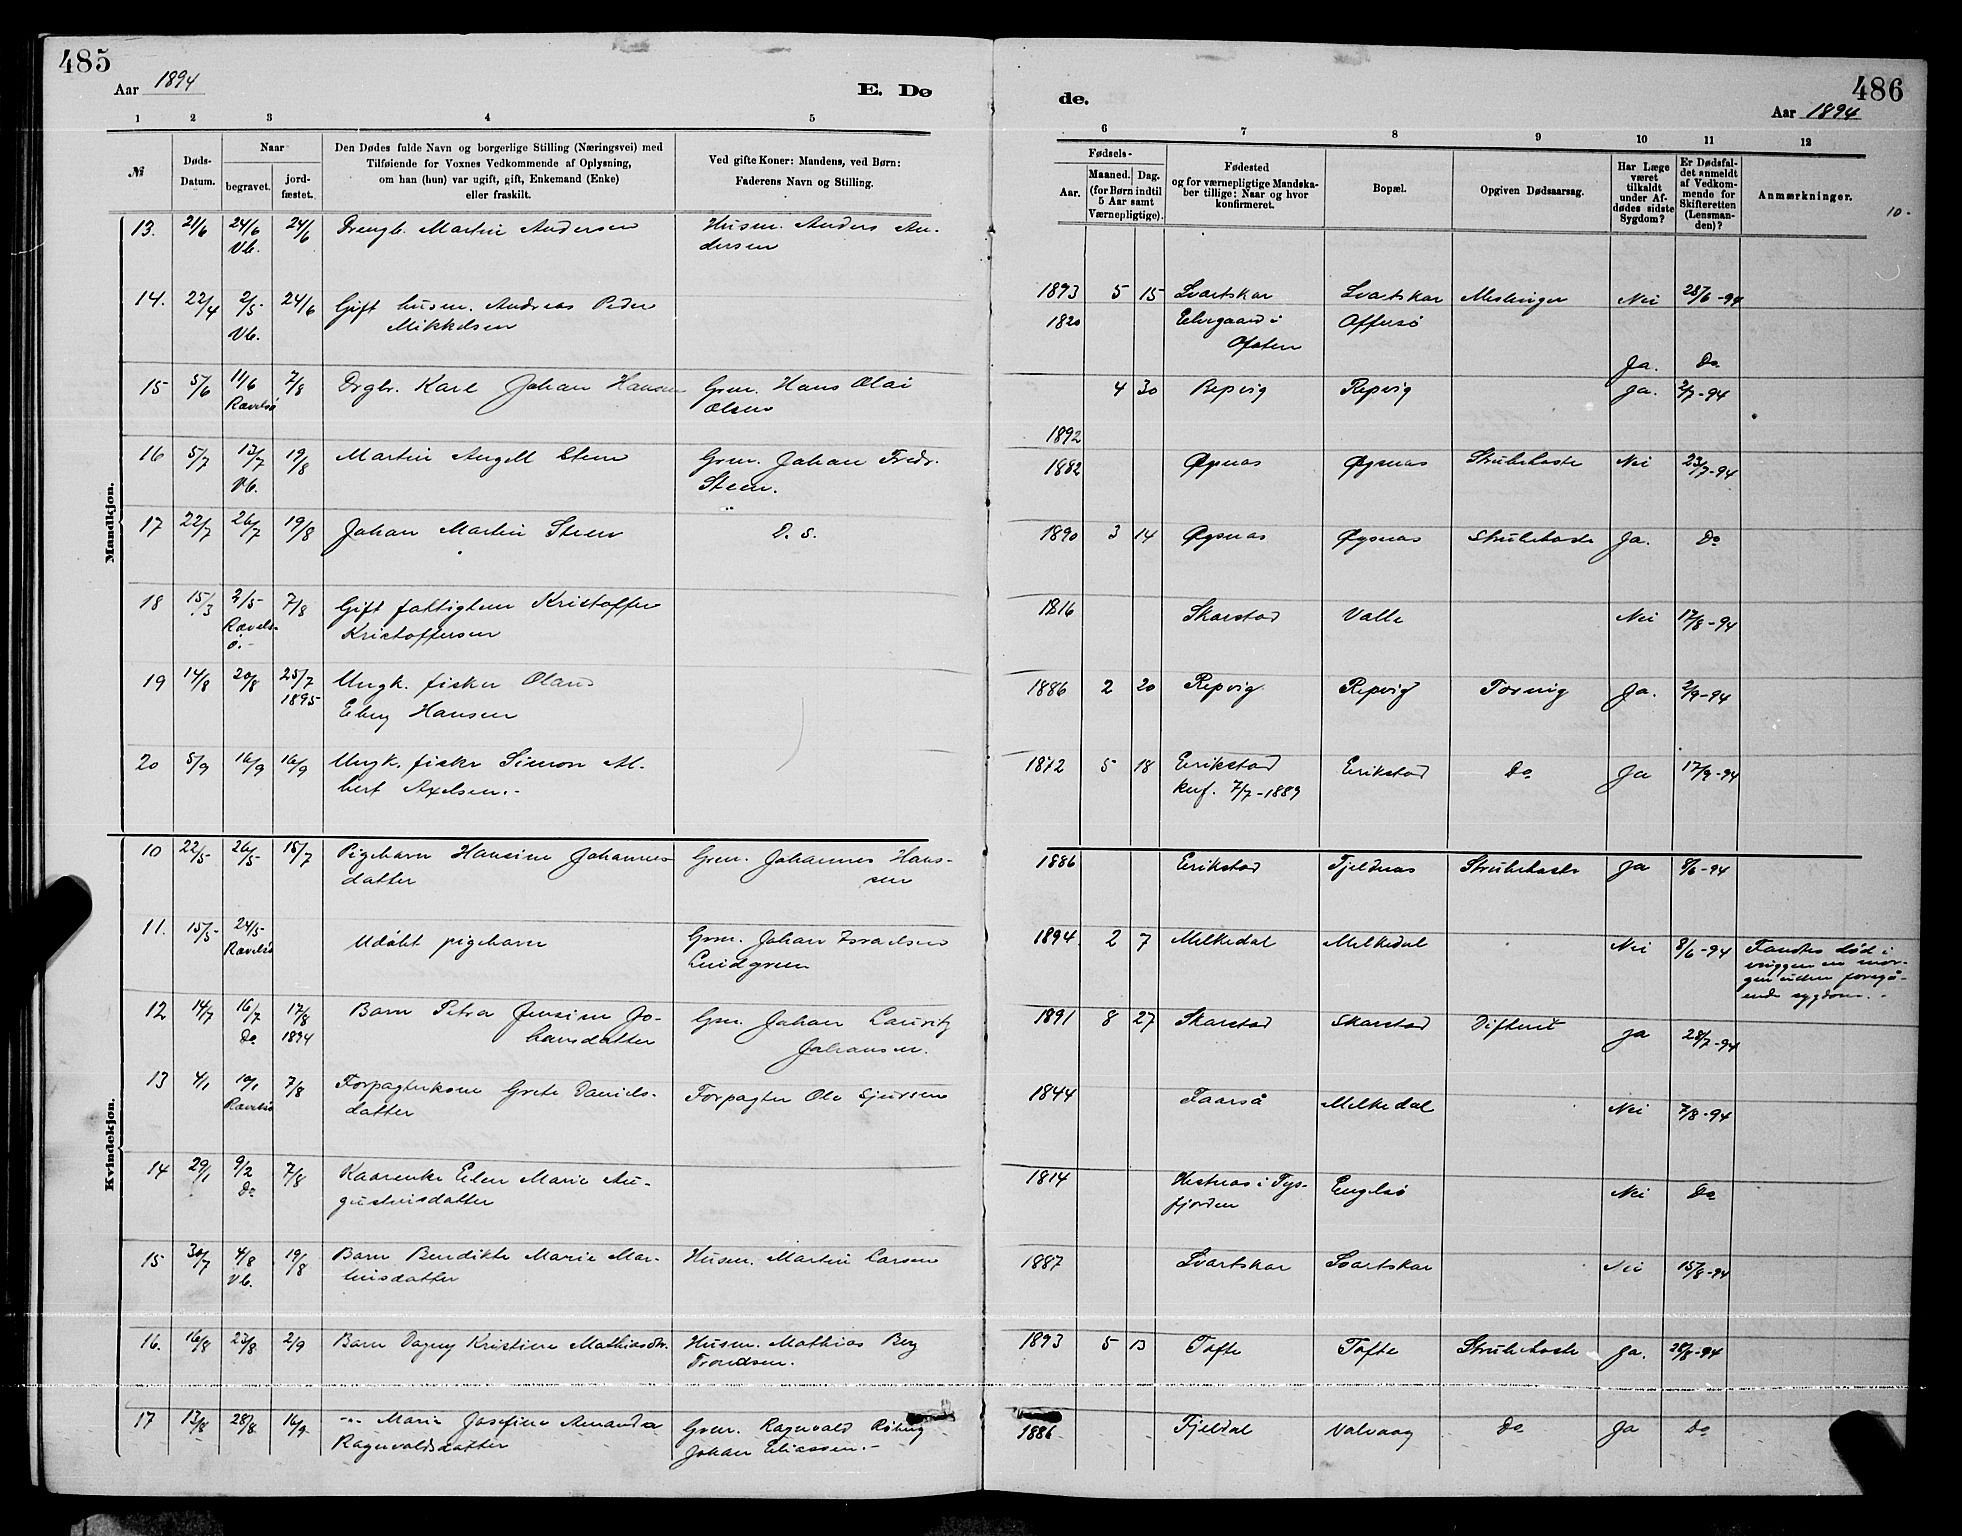 485
Aar 1894
E. Dø
1 2 3 4 5
№
Døds-
Datum.
Naar
begravet.
jord-
fæstet.
Den Dødes fulde Navn og borgerlige Stilling (Næringsvei) med
Tilføiende for Voxnes Vedkommende af Oplysning,
om han (hun) var ugift, gift, Enkemand (Enke)
eller fraskilt.
Ved gifte Koner: Mandens, ved Børn:
Faderens Navn og Stilling.
Mandkjøn.
13. 21/6 24/6 24/6 Drengb. Martin Andersen Husm. Anders An-
Vb. dersen
14. 22/4 2/5 24/6 Gift husm. Andreas Peder
Vb. Mikkelsen
15 5/6 11/6 7/8 Drgbr. Karl Johan Hansen Grm. Hans Olai
Rævelsø Olsen
16 5/7 13/7 19/8 Martin Angell Steen Grm. Johan Fredr.
Vb. Steen.
17 22/7 26/7 19/8 Johan Martin Steen D. S.
18 15/3 2/5 7/8 Gift fattiglem Kristoffer
Rævels- Kristoffersen
ø.-
19 14/8 20/8 25/7 Ungk. fisker Olaus
1895 Eberg Hansen
20 5/9 16/9 16/9 Ungk. fisker Simon Al-
bert Axelsen.-
Kvindekjøn.
10 22/5 26/5 15/7 Pigebarn Hansine Johannes Grm. Johannes Hans-
datter sen
11. 15/5 24/5 Udøbt pigebarn Grm. Johan Israelsen
Rævelsø Lindgreen
12 14/7 16/7 17/8 Barn Petra Jensine Jo- Grm. Johan Lauritz
Do 1894 hansdatter Johansen.
13 4/1 10/1 7/8 Forpagterkone Grete Daniels- Forpagter Ole Sjursen
Rævelsø datter
14 29/1 9/2 7/8 Kaarenke Elen Marie Au-
Do gustinsdatter
15 30/7 4/8 19/8 Barn Bendikte Marie Mar- Husm. Martin Larsen
Vb. tinsdatter
16. 16/8 23/8 2/9 Barn Dagny Kristine Mathiasdtr. Husm. Mathias Berg
Trondsen.
17 13/8 28/8 16/9 -"- Marie Josefine Amanda Grm. Ragnvald
Ragnvaldsdatter Johan Eliassen.-
486
Aar 1894
de.
6 7 8 9 10 11 12
Fødsels-
Aar.
Maaned. Dag.
(for Børn indtil
5 Aar samt
Værnepligtige).
Fødested
og for værnepligtige Mandska-
ber tillige: Naar og hvor
konfirmeret.
Bopæl.
Opgiven Dødsaarsag.
Har Læge
været
tilkaldt
under Af-
dødes sidste
Sygdom?
Er Dødsfal-
det anmeldt
af Vedkom-
mende for
Skifteretten
(Lensman-
den)?
Anmærkninger.
10-
1893 5 15 Svartskar Svartskar Meslinger Nei 28/6-94
1820 i Offersø
Ofoten
Ja. Do
4 30 Repvig Repvig Ja. 2/7-94
1892
1882 Øysnæs Øysnæs Strubehoste Nei 23/7-94
1890 3 14 Øysnæs Øysnæs Strubehoste Ja. Do
1816 Skarstad Valle Nei 17/8-94
1886 2 20 Repvig Repvig Tæring Ja. 2/9-94
1872 5 18 Erikstad Erikstad Do Ja 17/9-94
knf. 7/7-1889
1886 Erikstad Fjeldnæs Strubehoste Ja 8/6-94
1894 2 7 Melkedal Melkedal Nei 8/6-94 Fandtes død i
vuggen en mor-
gen uden foregå-
ende sygdom.-
1891 8 27 Skarstad Skarstad Difterit Ja 28/7-94
1844 Taarså Melkedal Nei 7/8-94
1814 Hestnæs i Tys- Engelsø Nei Do
fjorden
1887 Svartskar Svartskar Nei 15/8-94
1893 5 13 Tofte Tofte Strubehoste Ja. 28/8-94
1886 Fjeldal Valvaag Do Ja Do